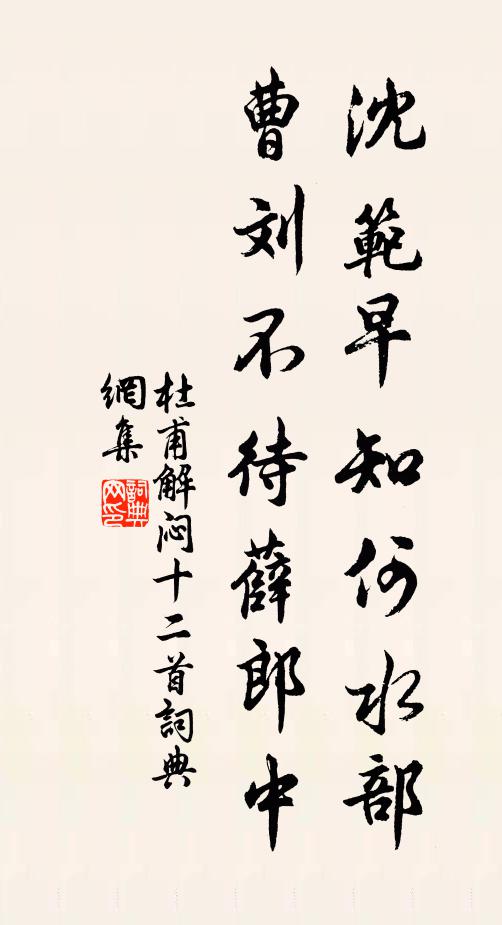 沈範早知何水部
曹刘不待薛郎中
杜甫解闷十二首詞典
網集
詞典
网印